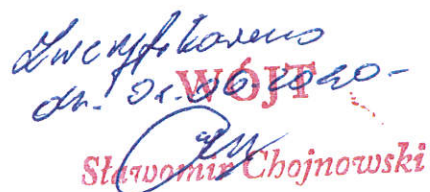 Zweryfikowano
dn. 01.06.2020-
WÓJT
Sławomir Chojnowski